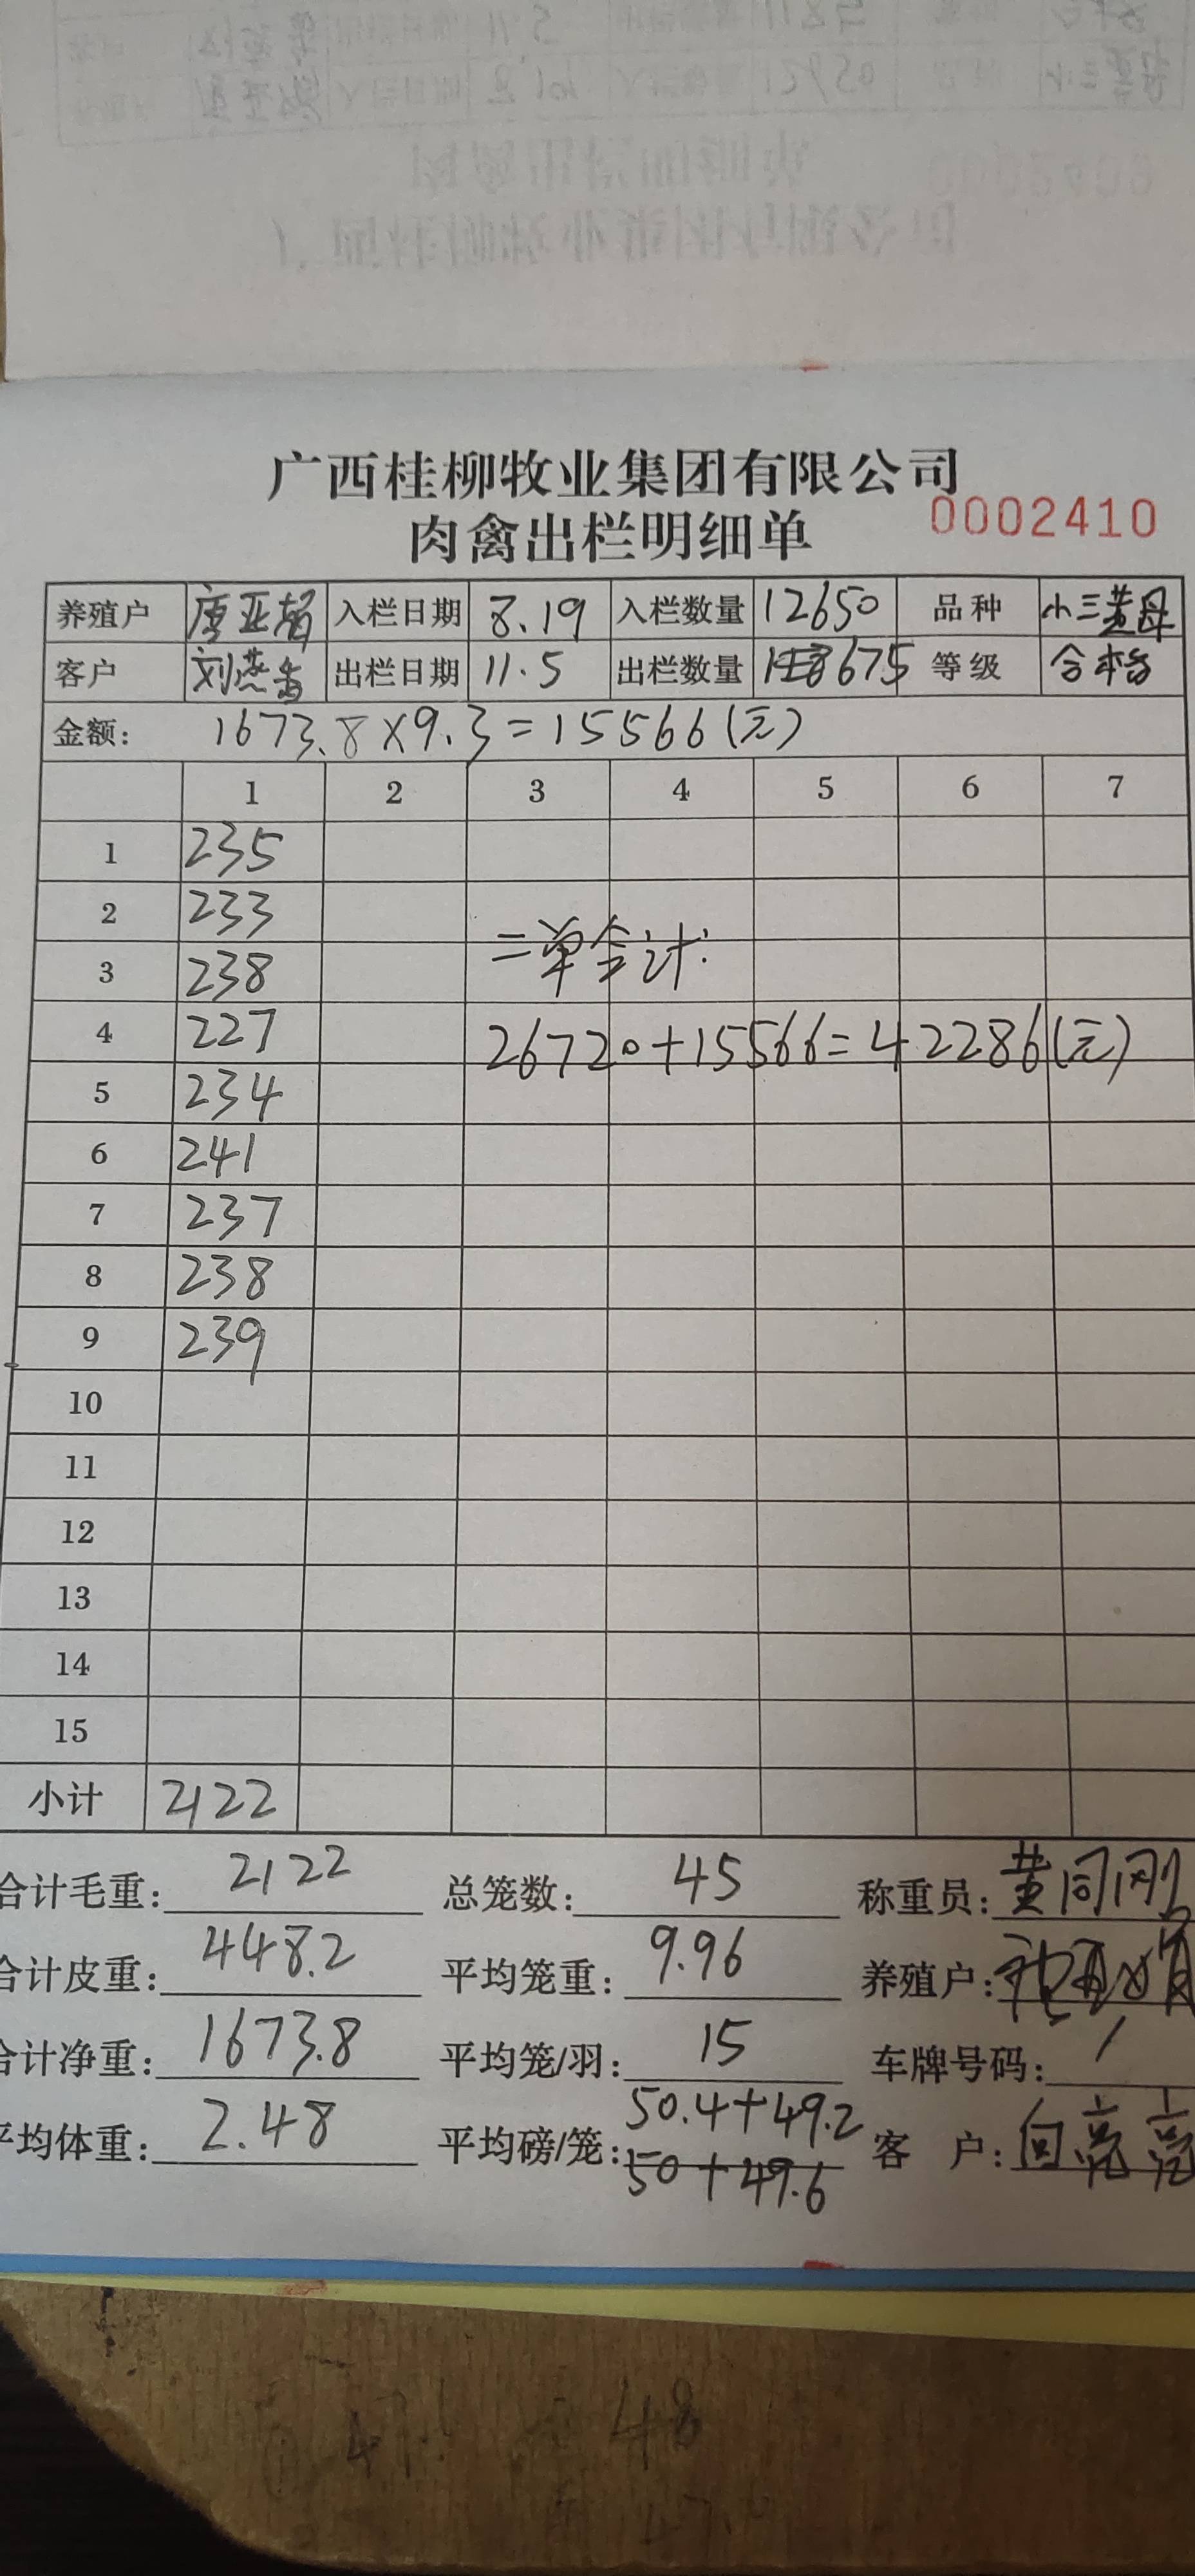 广西桂柳牧业集团有限公司
肉禽出栏明细单 0002410
养殖户 入栏日期 8.19 入栏数量 12650 品种 小三黄母
客户 刘燕香 出栏日期 11.5 出栏数量 675 等级 合格
金额: 1673.8×9.3=15566(元)
1 2 3 4 5 6 7
1 235
2 233
3 238
二单合计:
4 227
26720+15566=42286(元)
5 234
6 241
7 237
8 238
9 239
10
11
12
13
14
15
小计 2122
合计毛重: 2122 总笼数: 45 称重员: 黄同刚
合计皮重: 448.2 平均笼重: 9.96 养殖户:
合计净重: 1673.8 平均笼/羽: 15 车牌号码: /
平均体重: 2.48 平均磅/笼: 50.4+49.2 客 户: 向亮亮
50+49.6